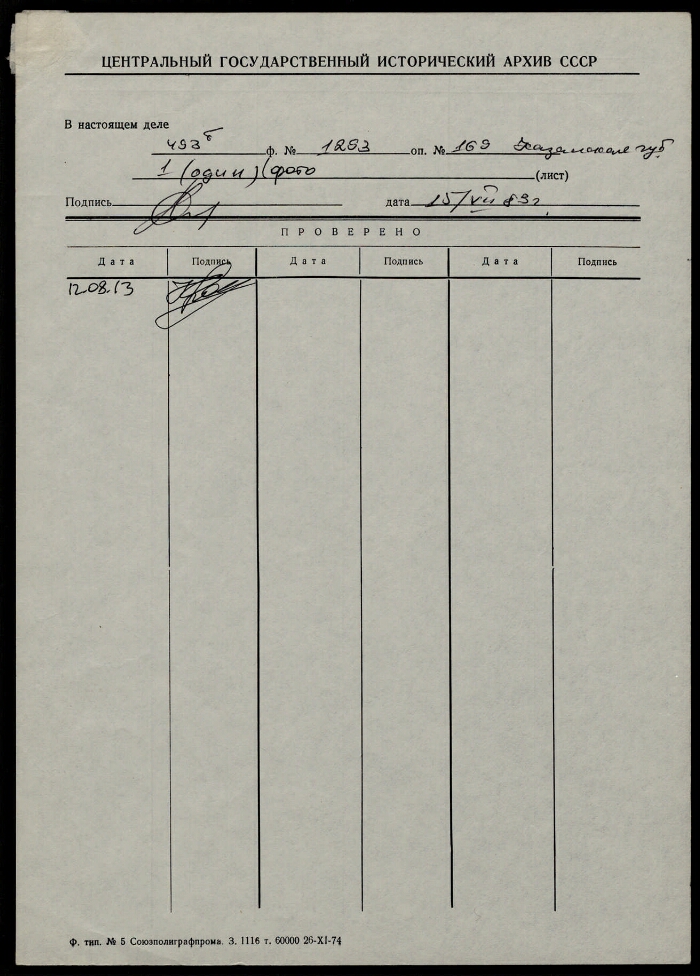 ЦЕНТРАЛЬНЫЙ ГОСУДАРСТВЕННЫЙ ИСТОРИЧЕСКИЙ АРХИВ СССР
В настоящем деле
493б ф. № 1293 оп. № 169 Казанская губ.
1 (один) фото (лист)
Подпись дата 15/VII 83 г.
ПРОВЕРЕНО
Дата Подпись Дата Подпись Дата Подпись
12.08.13
Ф. тип. № 5 Союзполиграфпрома. З. 1116 т. 60000 26-XI-74